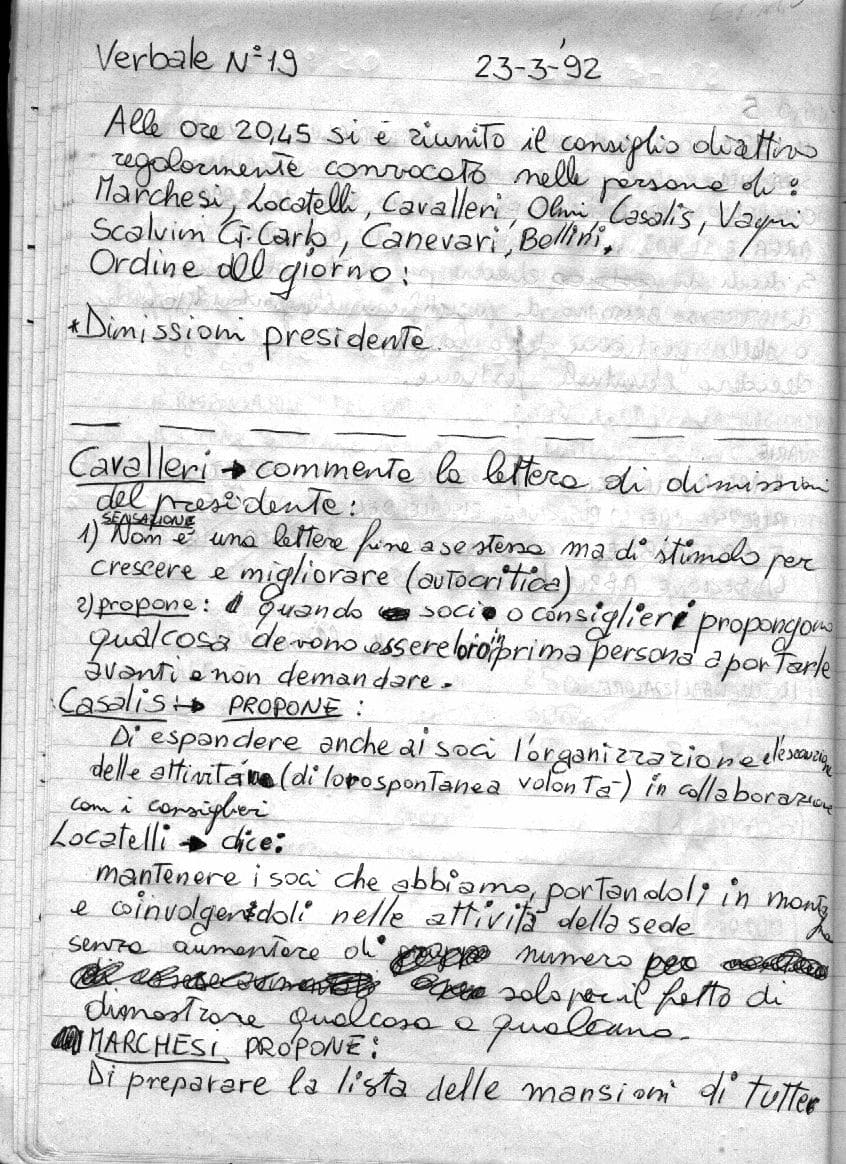 Verbale N°19 23-3-'92
Alle ore 20,45 si è riunito il consiglio direttivo
regolarmente convocato nelle persone di:
Marchesi, Locatelli, Cavalleri, Olmi Casalis, Vagni
Scalvini G.Carlo, Canevari, Bellini,
Ordine del giorno:
*Dimissioni presidente.
Cavalleri → commenta la lettera di dimissioni
del presidente:
SENSAZIONE
1) Non è una lettera fine a se stessa ma di stimolo per
crescere e migliorare (autocritica)
2) propone: quando soci o consiglieri propongono
qualcosa devono essere loro in prima persona a portarle
avanti e non demandare.
Casalis → PROPONE:
Di espandere anche ai soci l'organizzazione e l'esecuzione
delle attività (di loro spontanea volontà) in collaborazione
con i consiglieri
Locatelli → dice:
mantenere i soci che abbiamo, portandoli in montagna
e coinvolgendoli nelle attività della sede
senza aumentare di numero per
solo per il fatto di
dimostrare qualcosa a qualcuno.
MARCHESI PROPONE:
Di preparare la lista delle mansioni di tutte